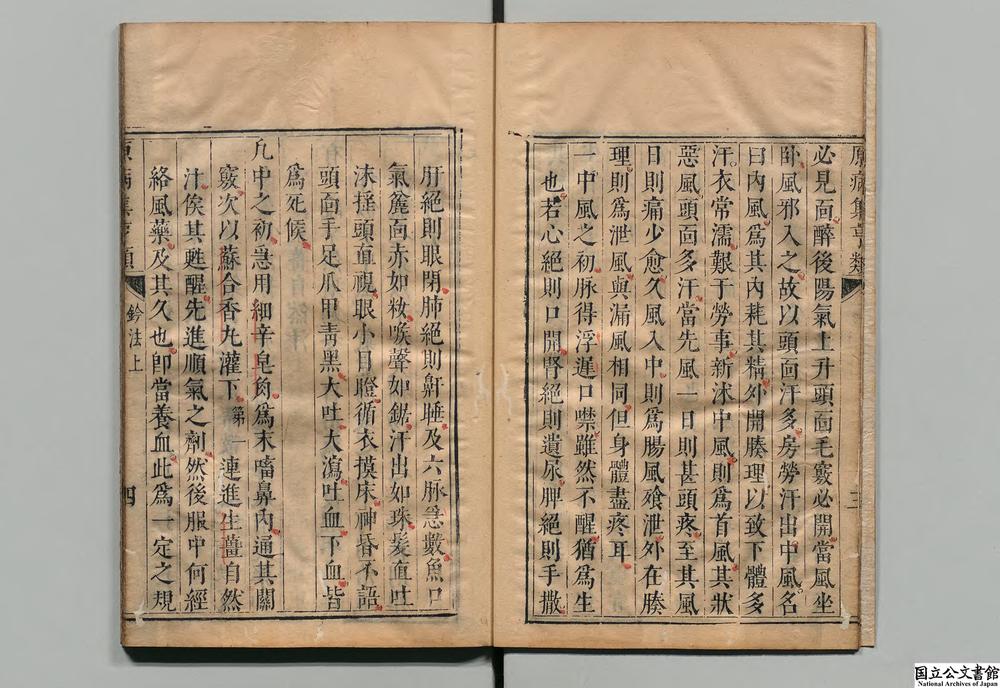 原病集亨類
三
必見面醉後陽氣上升頭面毛竅必開當風坐
卧風邪入之故以頭面汗多房勞汗出中風名
曰內風爲其內耗其精外開腠理以致下體多
汗衣常濡艱于勞事新沐中風則爲首風其狀
惡風頭面多汗當先風一日則甚頭疼至其風
日則痛少愈久風入中則爲腸風飱泄外在腠
理則爲泄風與漏風相同但身體盡疼耳
一中風之初脉得浮遲口噤雖然不醒猶爲生
也若心絕則口開腎絕則遺尿脾絕則手撒
肝絕則眼閉肺絕則鼾睡及六脉急數魚口
氣麄面赤如妝喉聲如鋸汗出如珠髮直吐
沫揺頭直視眼小目瞪循衣摸床神昏不語
頭面手足爪甲青黑大吐大瀉吐血下血皆
爲死候
凢中之初急用細辛皂角爲末㗜鼻內通其關
竅次以蘇合香丸灌下第一連進生薑自然
汁俟其甦醒先進順氣之劑然後服中何經
絡風藥及其久也即當養血此爲一定之規
原病集亨類
鈐法上
四
国立公文書館
National Archives of Japan